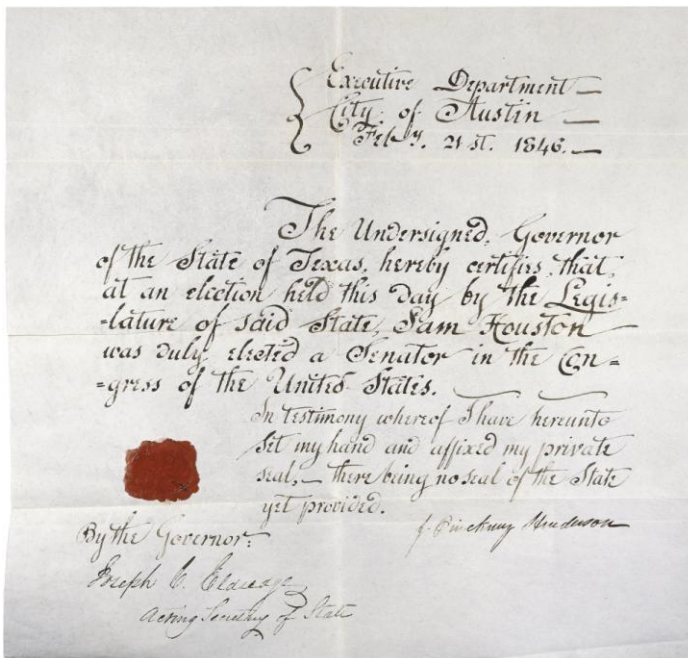 Executive Department —
City of Austin —
Feby. 21st. 1846. —
The Undersigned, Governor
of the State of Texas, hereby certifies, that,
at an election held this Day by the Legis=
-lature of said State, Sam Houston
was duly elected a Senator in the Con=
=gress of the United States.
In testimony whereof I have hereunto
set my hand and affixed my private
seal, — there being no seal of the State
yet provided.
J. Pinckney Henderson
By the Governor:
Joseph C. Eldredge
Acting Secretary of State